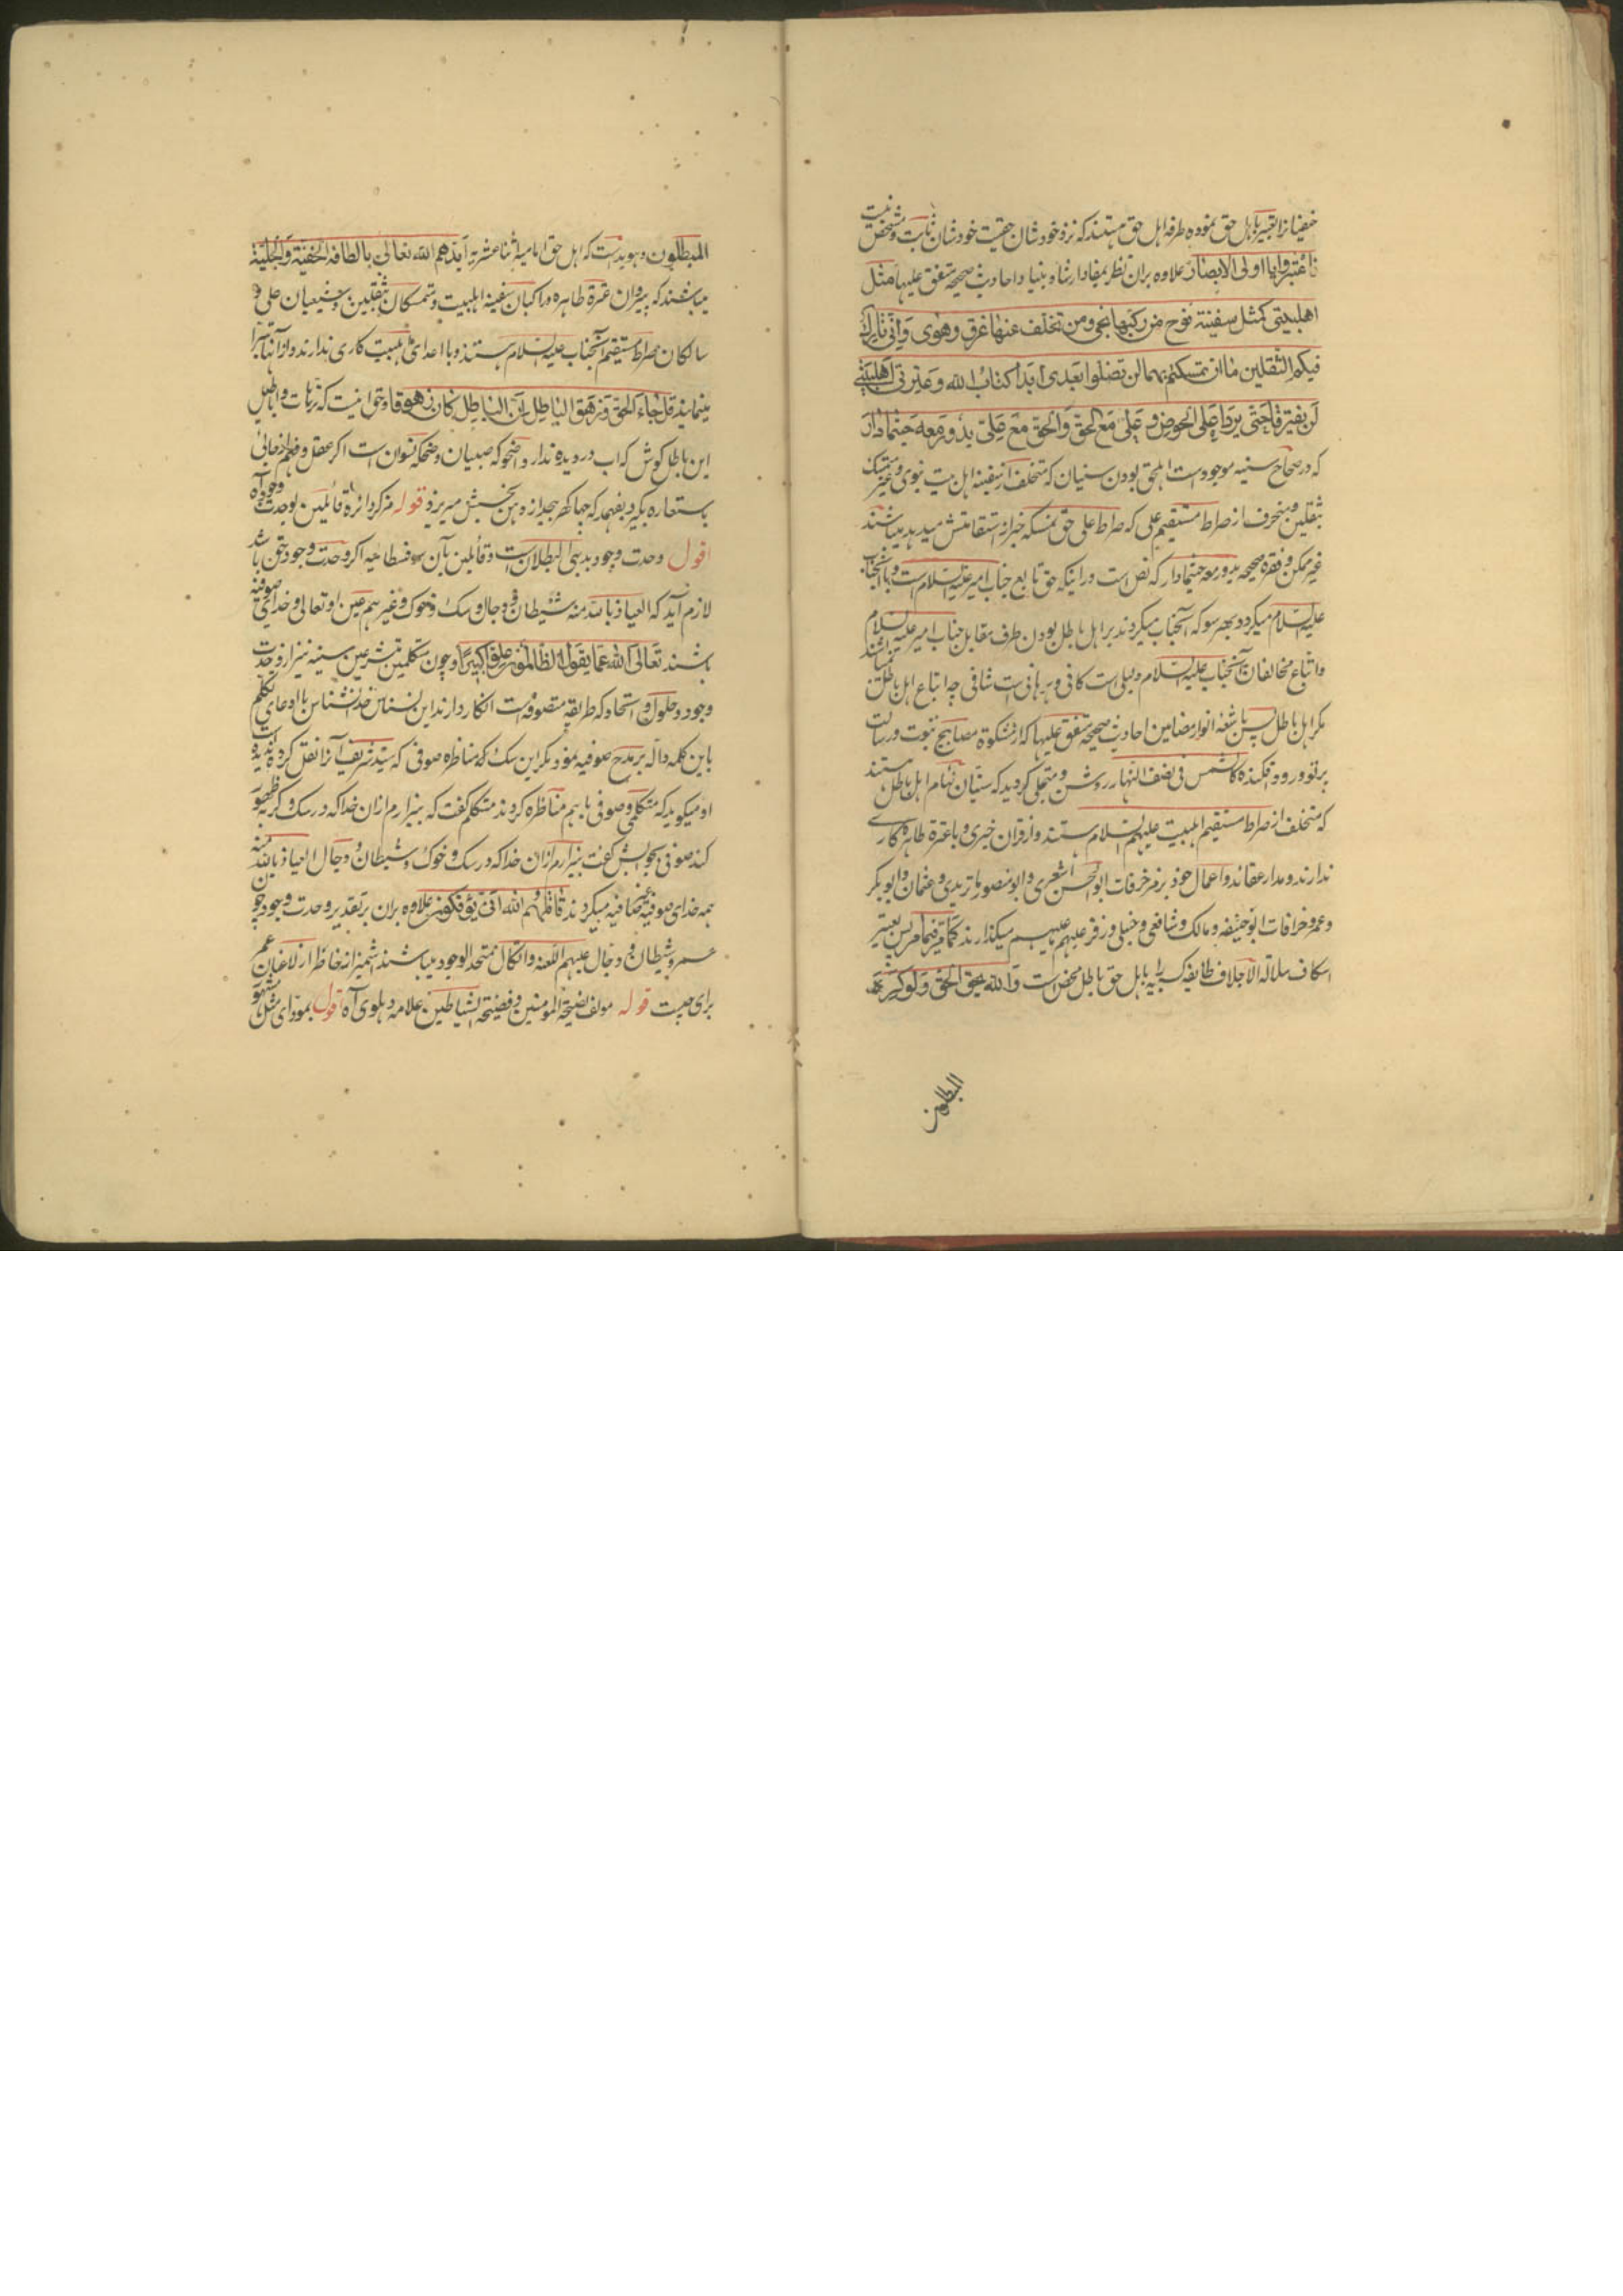 حنفیانرا تعبیر باهل حق نموده طرفه اهل حق هستند که نزد خودشان حقیت خودشان ثابت و مشخص نیست
فاعتبروا یا اولی الابصار علاوه بران نظر بمفاد ارشاد بنیاد احادیث صحیحه متفق علیها مثل
اهلبیتی کمثل سفینة نوح من رکبها نجی ومن تخلف عنها غرق وهوی وانی تارک
فیکم الثقلین ما ان تمسکتم بهما لن تضلوا بعدی ابدا کتاب الله وعترتی اهلبیتی
لن یفترقا حتی یردا علی الحوض و علی مع الحق والحق مع علی یدور معه حیثما دار
که در صحاح سنیه موجودست اهل حق بودن سنیان که متخلف از سفینه اهل بیت نبوی و غیر متمسک
بثقلین و منحرف از صراط مستقیم علی که صراط علی حق نمسکه خبر از استقامتش میدهد میباشند
غیر ممکن و فقره صحیحه یدور معه حیثما دار که نص ست در اینکه حق تابع جناب امیر علیه السلام است و با آنجناب
علیه السلام میگردد بهر سو که آنجناب میگردند بر اهل باطل بودن طرف مقابل جناب امیر علیه السلام
و اتباع مخالفان آنجناب علیه السلام دلیلی است کافی و برهانی ست شافی چه اتباع اهل باطل نمیباشند
مگر اهل باطل پس باشعه انوار مضامین احادیث صحیحه متفق علیها که از مشکوة مصابیح نبوت و رسالت
پرتو ورود افکنده کالشمس فی نصف النهار روشن و متجلی گردید که سنیان تمام اهل باطل هستند
که متخلف از صراط مستقیم اهلبیت علیهم السلام هستند و از قران خبری و با عترة طاهره کاری
ندارند و مدار عقائد و اعمال خود بر مزخرفات ابو الحسن اشعری و ابو منصور ماتریدی و عثمان و ابو بکر
و عمر و خرافات ابو حنیفه و مالک و شافعی و حنبلی و زفر علیهم ما علیهم میگذارند کما مر فیما مر پس تعبیر
اسکاف سلالة الاجلاف طایفه سنیه را باهل حق باطل محض است والله یحق الحق ولو کره
المبطلون
المبطلون و هویداست که اهل حق امامیه اثنا عشریه ایدهم الله تعالی بالطافه الخفیة والجلیة
میباشند که پیروان عترة طاهره و راکبان سفینه اهلبیت و متمسکان بثقلین و شیعیان علی و
سالکان صراط مستقیم آنجناب علیه السلام هستند و با اعدای اهلبیت کاری ندارند و از آنها تبرا
مینمایند قل جاء الحق وزهق الباطل ان الباطل کان زهوقا و حق اینست که ترهات و اباطیل
این باطل کوش که اب در دیده ندارد اضحوکه صبیان و ضحکه نسوان است اگر عقل و فهم از جائی
باستعاره بگیرد بفهمد که چها گهر بیجا از دهن نجسش میریزد قوله مرکز دائرة قائلین بوحدت وجود آه
اقول وحدت وجود بدیهی البطلان است و قائلین بآن سوفسطائیه اگر وحدت وجود حق باشد
لازم آید که العیاذ بالله منه شیطان و دجال و سگ و خوک و غیرهم عین او تعالی و خدای صوفیه
باشند تعالی الله عما یقول الظالمون علوا کبیرا و چون متکلمین متشرعین سنیه نیز از وحدت
وجود و حلول و اتحاد که طریقه متصوفه است انکار دارند این نسناس خدا نشناس با ادعای تکلم
باین کلمه داله بر مدح صوفیه نمود مگر این سگ که مناظره صوفی که سید شریف آنرا نقل کرده نشنیده است
او میگوید که متکلمی و صوفی باهم مناظره کردند متکلم گفت که بیزارم ازان خدا که در سگ و گربه ظهور
کند صوفی بجوابش گفت بیزارم ازان خدا که در سگ و خوک و شیطان و دجال العیاذ بالله منه
همه خدای صوفیه صافیه میگردند قاتلهم الله انی یؤفکون علاوه بران بر تقدیر وحدت وجود چون
عمر و شیطان و دجال علیهم اللعنة والنکال متحد الوجود میباشند اشمیزاز خاطر از لاعنان عمر
برای چیست قوله مولف نصیحة المومنین و فضیحة الشیاطین علامه دهلوی آه اقول بمودای مثل مشهور